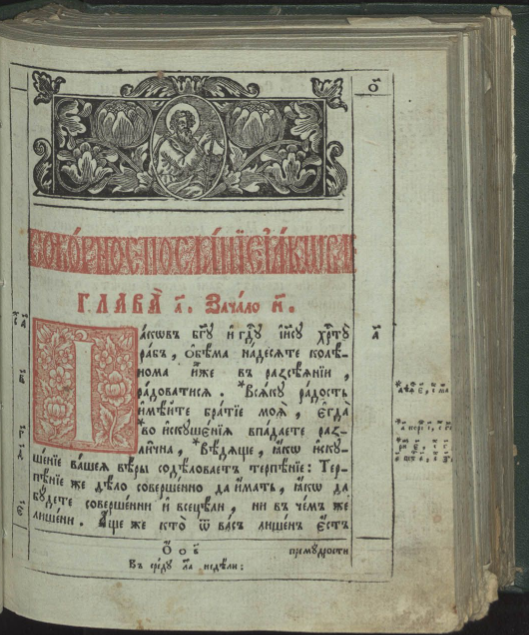 о҃
СОБО́РНОЕ ПОСЛА́НЇЕ І҆А́КѠВА
ГЛАВА̀ а҃. Зача́ло н҃.
І҆а́кѡвъ бг҃ꙋ и҆ гдⷭ҇ꙋ і҆и҃сꙋ хрⷭ҇тꙋ̀
рабъ, ѻ҆бѣ́ма надесѧте колѣ́-
нома и҆̀же въ разсѣѧнїи,
ра́доватисѧ. *Всѧ́кꙋ радость
и҆мѣ́ите бра́тїе моѧ̀, є҆гда̀
*во и҆скꙋше́нїѧ впа́даете раз-
ли́чна, *Вѣ́дѧще, ꙗ҆́кѡ и҆скꙋ-
ше́нїе ва́шеѧ вѣ́ры содѣ́ловаетъ терпѣ́нїе: Тер-
пѣ́нїе же дѣ́ло соверше́нно да и҆́мать, ꙗ҆́кѡ да
бꙋ́дете соверше́нни и҆ всецѣ́ли, ни въ че́мъ же
лише́ни. А҆́ще же кто̀ ѿ ва́съ лише́нъ є҆́сть
премꙋ́дрости
Въ сре́дꙋ л҃а недѣ́ли: